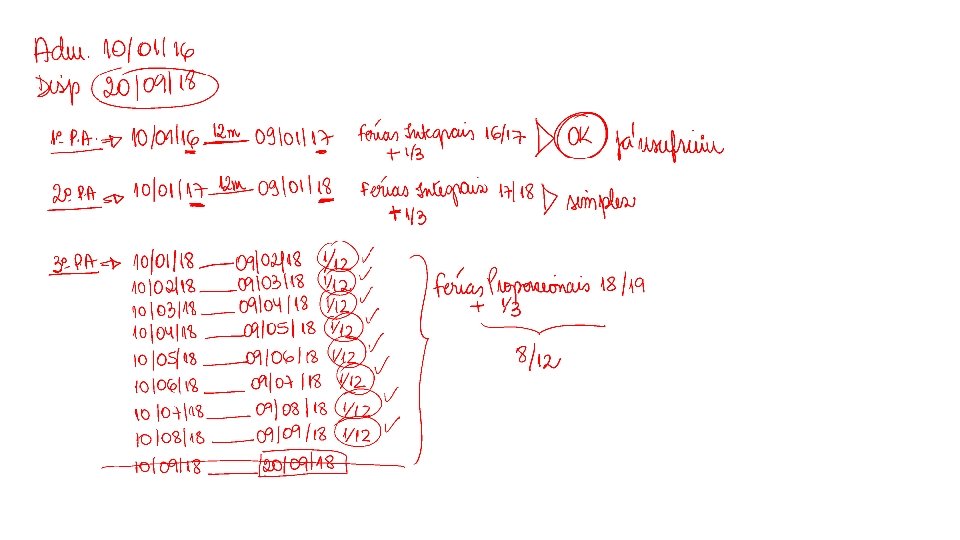 Adm. 10/01/16
Disp 20/09/18
1º P.A. ⇒ 10/01/16 12m 09/01/17 Férias Integrais 16/17 OK já usufruiu
+ 1/3
2º PA ⇒ 10/01/17 12m 09/01/18 Férias Integrais 17/18 simples
+ 1/3
3º PA ⇒ 10/01/18 09/02/18 1/12 ✓
10/02/18 09/03/18 1/12 ✓
10/03/18 09/04/18 1/12 ✓
10/04/18 09/05/18 1/12 ✓
10/05/18 09/06/18 1/12 ✓
10/06/18 09/07/18 1/12 ✓
10/07/18 09/08/18 1/12 ✓
10/08/18 09/09/18 1/12 ✓
10/09/18 20/09/18
Férias Proporcionais 18/19
+ 1/3
8/12